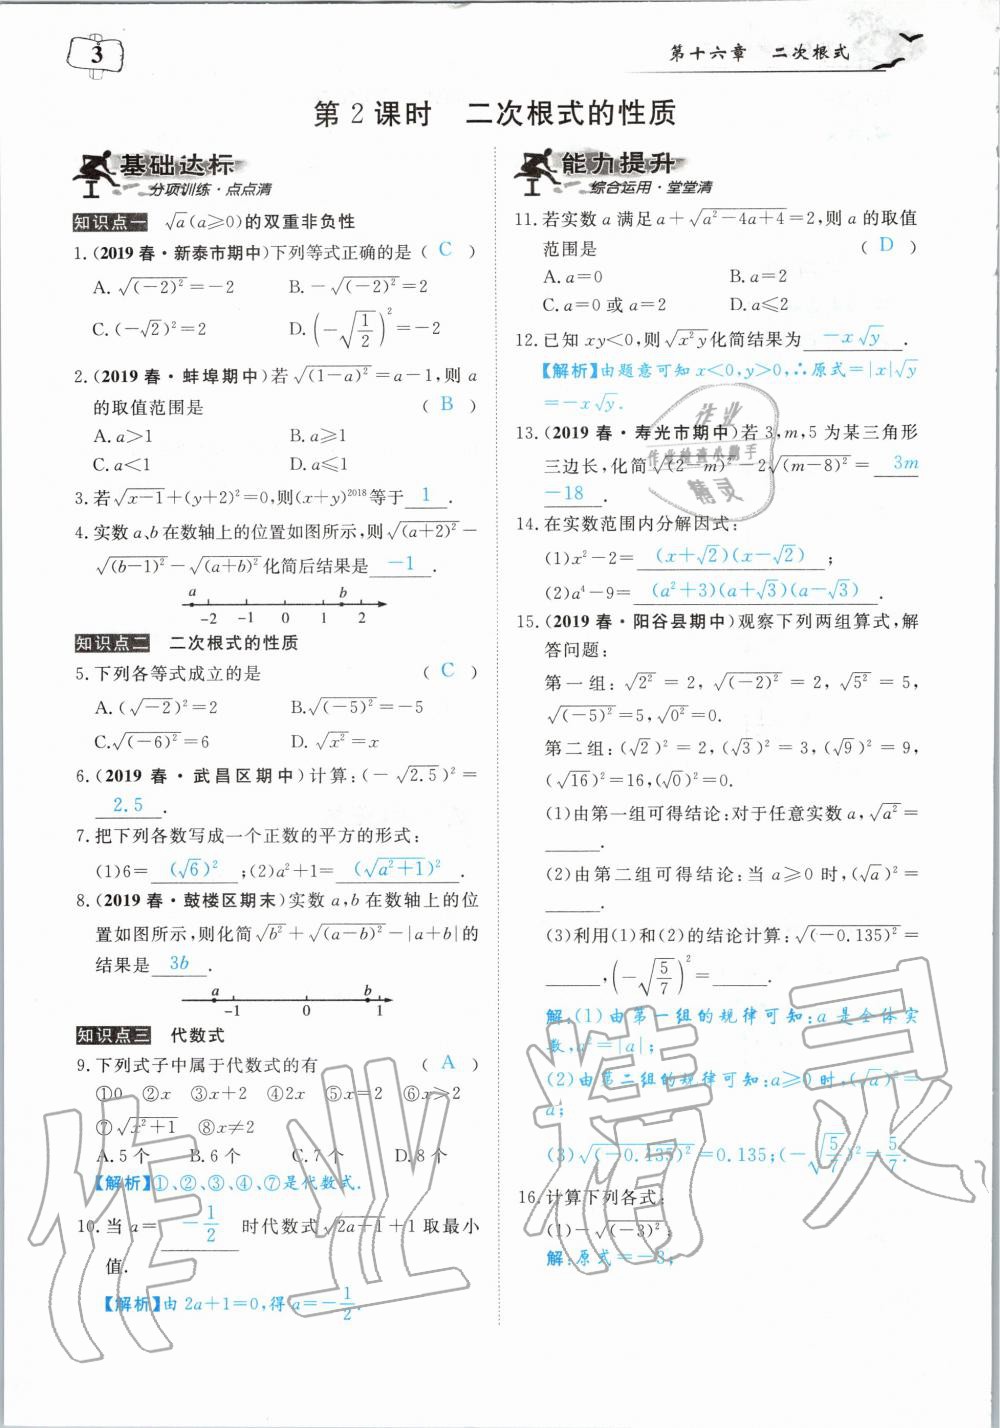 3
第十六章 二次根式
第 2 课时 二次根式的性质
基础达标
分项训练·点点清
知识点一 √a(a≥0)的双重非负性
1.(2019 春·新泰市期中)下列等式正确的是 ( C )
A. √(-2)² =-2 B. -√(-2)² =2
C. (-√2)²=2 D. (-√(1/2))²=-2
2.(2019 春·蚌埠期中)若 √(1-a)² =a-1,则 a
的取值范围是 ( B )
A. a>1 B. a≥1
C. a<1 D. a≤1
3.若√(x-1)+(y+2)²=0,则(x+y)²⁰¹⁸等于 1 .
4.实数 a、b 在数轴上的位置如图所示,则√(a+2)² -
√(b-1)² -√(a+b)² 化简后结果是 -1 .
a b
-2 -1 0 1 2
知识点二 二次根式的性质
5.下列各等式成立的是 ( C )
A. (√-2)²=2 B. √(-5)² =-5
C. √(-6)² =6 D. √x² =x
6.(2019 春·武昌区期中)计算:(-√2.5)²=
2.5 .
7.把下列各数写成一个正数的平方的形式:
(1)6= (√6)² ;(2)a²+1= (√(a²+1))² .
8.(2019 春·鼓楼区期末)实数 a,b 在数轴上的位
置如图所示,则化简√b² +√(a-b)² -|a+b|的
结果是 3b .
a b
-1 0 1
知识点三 代数式
9.下列式子中属于代数式的有 ( A )
①0 ②x ③x+2 ④2x ⑤x=2 ⑥x>2
⑦√(x²+1) ⑧x≠2
A. 5 个 B. 6 个 C. 7 个 D. 8 个
【解析】①、②、③、④、⑦是代数式.
10.当 a= -1/2 时代数式√(2a+1)+1 取最小
值.
【解析】由 2a+1=0,得 a=-1/2.
能力提升
综合运用·堂堂清
11.若实数 a 满足 a+√(a²-4a+4)=2,则 a 的取值
范围是 ( D )
A. a=0 B. a=2
C. a=0 或 a=2 D. a≤2
12.已知 xy<0,则√(x²y)化简结果为 -x√y .
【解析】由题意可知 x<0,y>0,∴原式=|x|√y
=-x√y.
13.(2019 春·寿光市期中)若 3,m,5 为某三角形
三边长,化简√(2-m)² -2√(m-8)² = 3m
-18 .
14.在实数范围内分解因式:
(1)x²-2= (x+√2)(x-√2) ;
(2)a⁴-9= (a²+3)(a+√3)(a-√3) .
15.(2019 春·阳谷县期中)观察下列两组算式,解
答问题:
第一组:√2² =2,√(-2)² =2,√5² =5,
√(-5)² =5,√0² =0.
第二组:(√2)²=2,(√3)²=3,(√9)²=9,
(√16)²=16,(√0)²=0.
(1)由第一组可得结论:对于任意实数 a,√a² =
______.
(2)由第二组可得结论:当 a≥0 时,(√a)²=
______.
(3)利用(1)和(2)的结论计算:√(-0.135)² =
______,(-√(5/7))²=______.
解:(1)由第一组的规律可知:a 是全体实
数,a²=|a|;
(2)由第二组的规律可知:a≥0 时,(√a)²=
a;
(3)√(-0.135)² =0.135;(-√(5/7))²=5/7.
16.计算下列各式:
(1)-√(-3)² ;
解:原式=-3;
作业
作业检查小助手
精灵
作业精灵